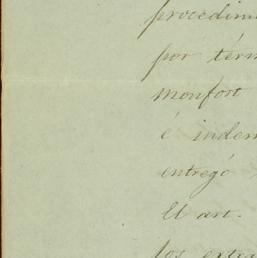 procedimi
por térm
monfort
é indem
entregó
El art.
los extra